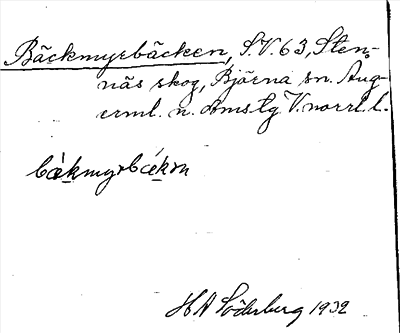 Bäckmyrbäcken, S.V. 63, Sten-
näs skog, Björna sn. Ång-
erml. n. domstg V. norrl. l.
bækmyrbækɷn
H A Söderberg 1932